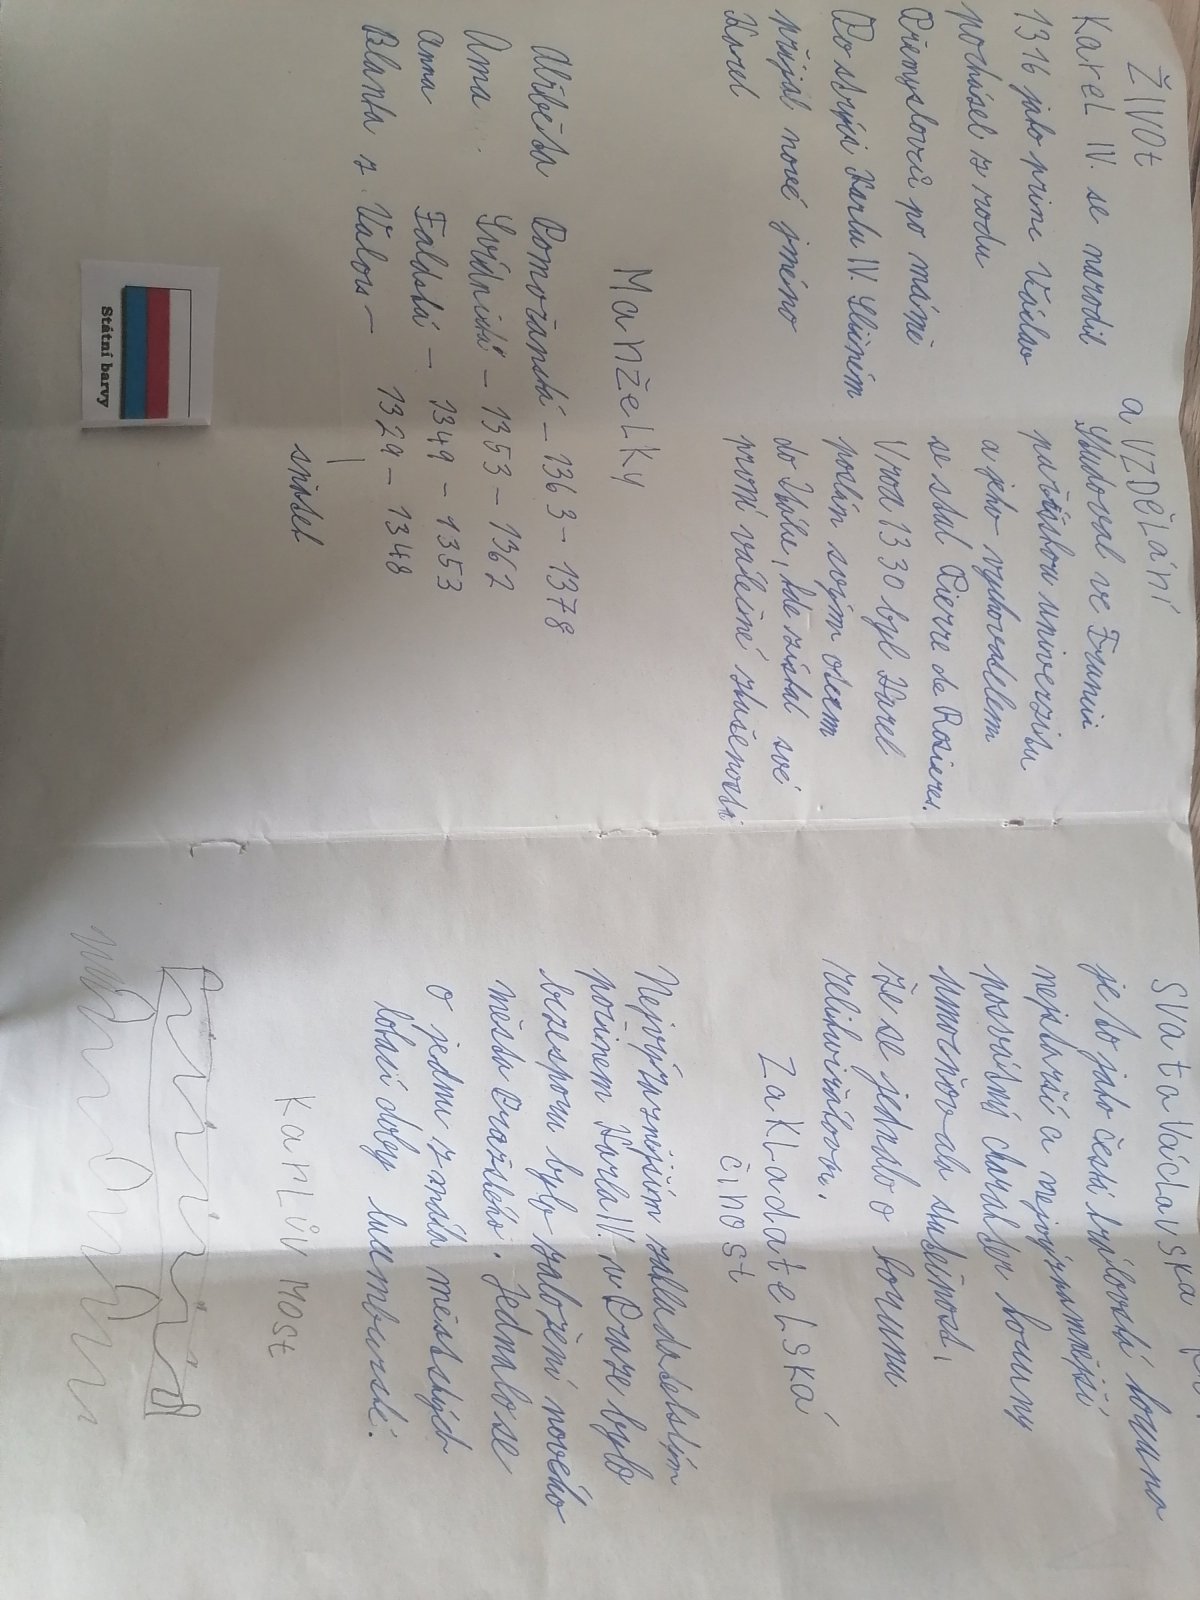 ŽIVOt a VZDĚLání
Karel IV. se narodil
1316 jako princ Václav
pocházel z rodu
Přemyslovců po mámě
Po strýci Karlu IV. Sličném
přijal nové jméno
Karel
Studoval ve Francii
pařížskou univerzitu
a jeho vychovatelem
se stal Pierre de Rosieres.
V roce 1330 byl Karel
poslán svým otcem
do Itálie, kde získal své
první válečné zkušenosti
ManžeLky
Alžběta Pomořanská – 1363 – 1378
Anna Svídnická – 1353 – 1362
Anna Falcká – 1349 – 1353
Blanka z Valois – 1329 – 1348
sňatek
Státní barvy
SVatoVáclavská
je to jako česká královská koruna
nejstarší a nejvýznamnější
posvátný charakter koruny
umocňovala skutečnost,
že se jednalo o korunu
relikviářovou.
ZakLadateLSKá
činost
Nejvýznamějším zakladatelským
počinem Karla IV. v Praze bylo
bezesporu bylo založení nového
města Pražského. Jednalo se
o jednu z mála městských
lokací doby lucemburské.
KarLův Most